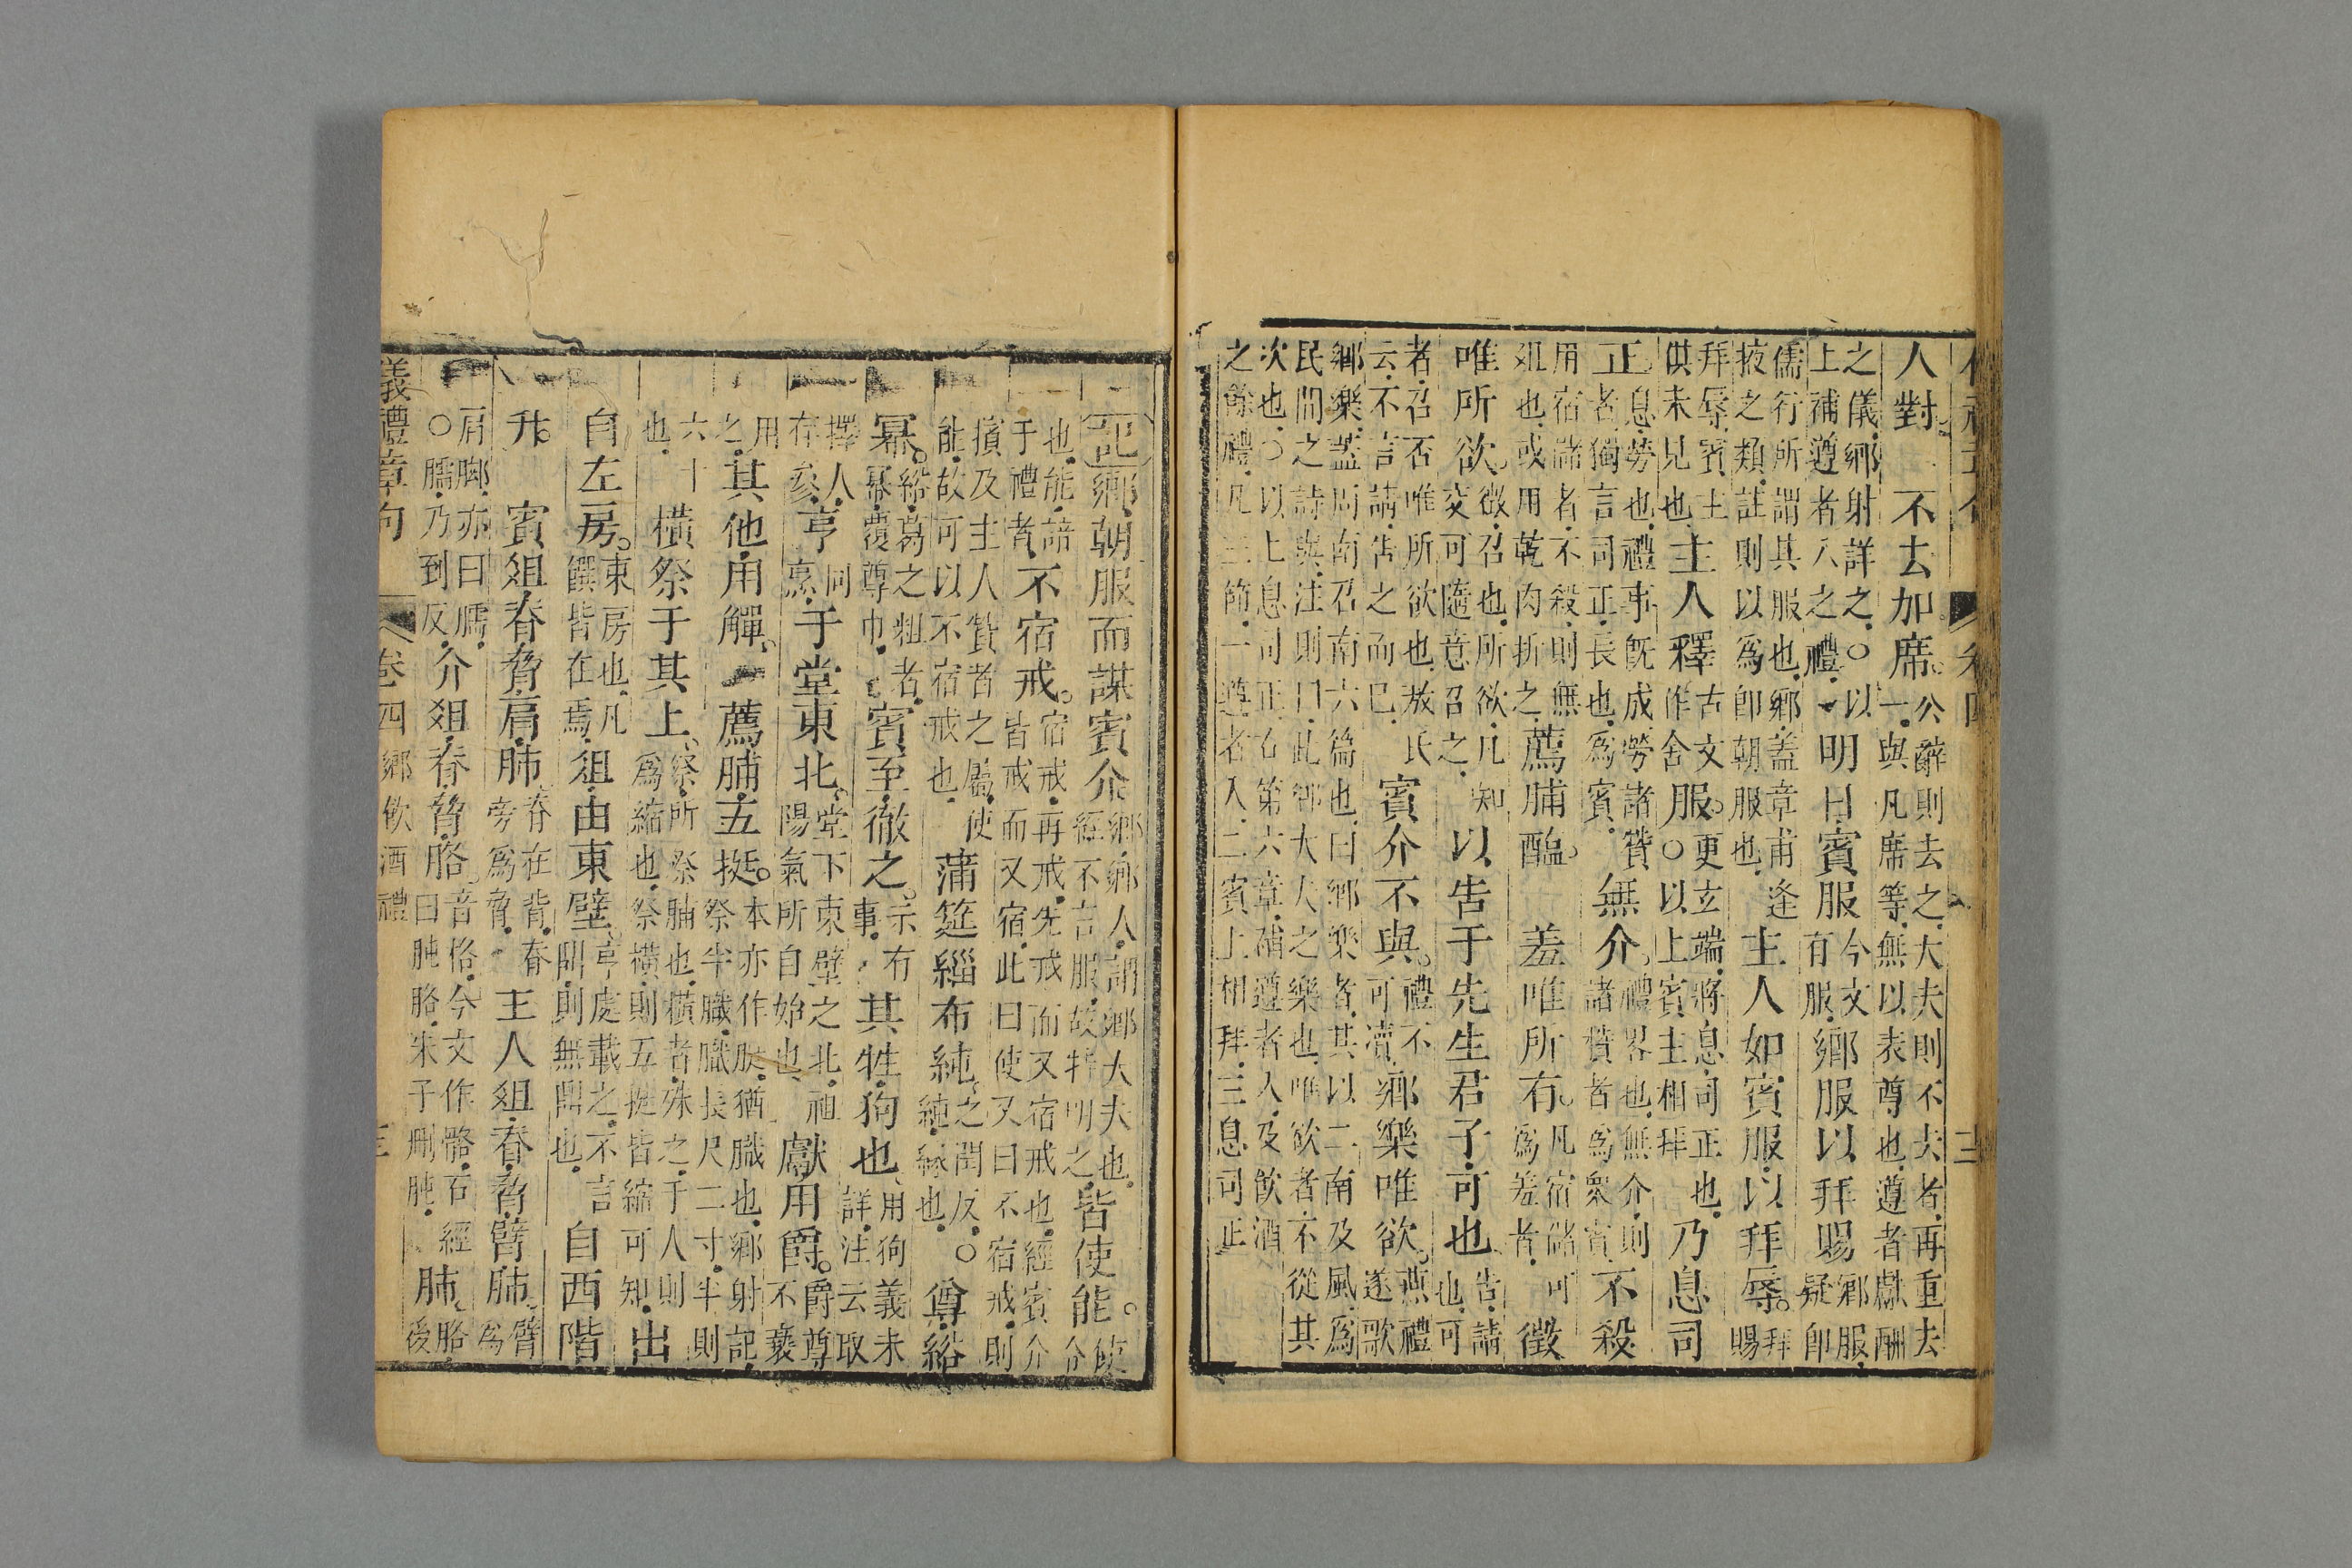 人對 不去加席。公辭則去之大夫則不去者再重去一與凡席等無以表尊也遵者獻酬
之儀鄉射詳之○以上補遵者入之禮 明日賓服今文有服鄉服以拜賜鄉服疑即
儒行所謂其服也鄉蓋章甫逢掖之類註則以爲卽朝服也 主人如賓服以拜辱。拜賜
拜辱賓主俱未見也主人釋古文作舍服。更玄端將息司正也○以上賓主相拜 乃息司
正息勞也禮事旣成勞諸贊者獨言司正長也爲賓 無介。禮畧也無介則諸贊者爲衆賓 不殺
用宿諸者不殺則無俎也或用乾肉折之薦脯醢。 羞唯所有。凡宿儲可爲羞者 徵
唯所欲。徵召也所欲凡知交可隨意召之 以告于先生君子可也告請也可
者召否唯所欲也敖氏云不言請告之而已 賓介不與。禮不可瀆 鄉樂唯欲。燕禮遂歌
鄉樂蓋周南召南六篇也曰鄉樂者其以二南及風爲民間之詩與注則曰此鄉大夫之樂也唯欲者不從其
次也○以上息司正右第六章補遵者入及飲酒之餘禮凡三節一遵者入二賓上相拜三息司正
記鄉朝服而謀賓介鄉鄉人謂鄉大夫也經不言服故特明之皆使能。使介
也能諳于禮者不宿戒。宿戒再戒先戒而又宿戒也經賓介皆戒而又宿此曰使又曰不宿戒則
擯及主人贊者之屬使能故可以不宿戒也 蒲筵緇布純之閏反○純緣也 尊綌
冪。綌葛之粗者冪覆尊巾 賓至徹之。示有事 其牲狗也用狗義未詳注云取
擇人存參亨同烹于堂東北堂下東壁之北祖陽氣所自始也 獻用爵。爵尊不褻
用之其他用觶。 薦脯五挺。本亦作脡猶膱也鄉射記祭半膱膱長尺二寸半則
六十也橫祭于其上祭所祭脯也橫者殊之于人則爲縮也祭橫則五挺皆縮可知 出
自左房。東房也凡饌皆在焉 俎由東壁亨處載之不言鼎則無鼎也 自西階
升。 賓俎脊脅肩肺脊在背脊旁爲脅 主人俎脊脅臂肺臂爲
肩腳亦曰臑○臑乃到反 介俎脊脅胳。音格今文作骼石經曰肫胳朱子刪肫 肺胳後
儀禮章句 卷四鄉飲酒禮